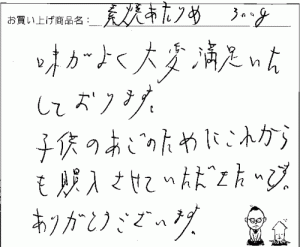 お買い上げ商品名： 素焼あたりめ 300g
味がよく大変満足いた
しております。
子供のあごのためにこれから
も購入させていただきたいです。
ありがとうございます。